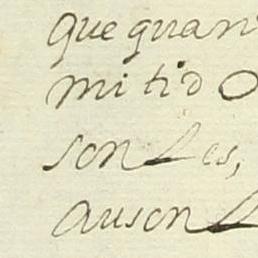 que quan
mitio
son Les,
auson